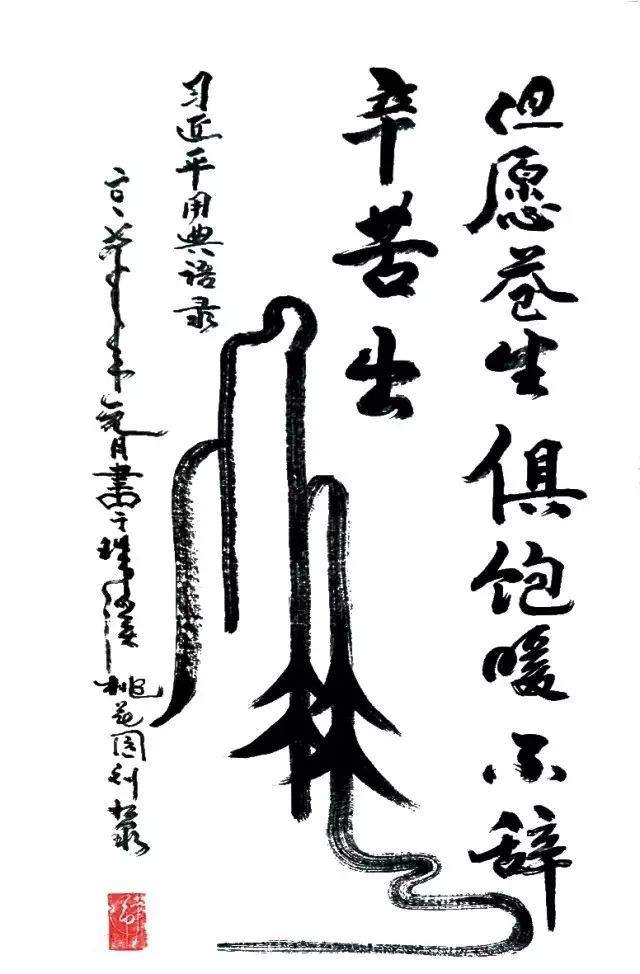 但愿苍生俱饱暖不辞
辛苦出
山林
习近平用典语录
月書于珠 桃花园